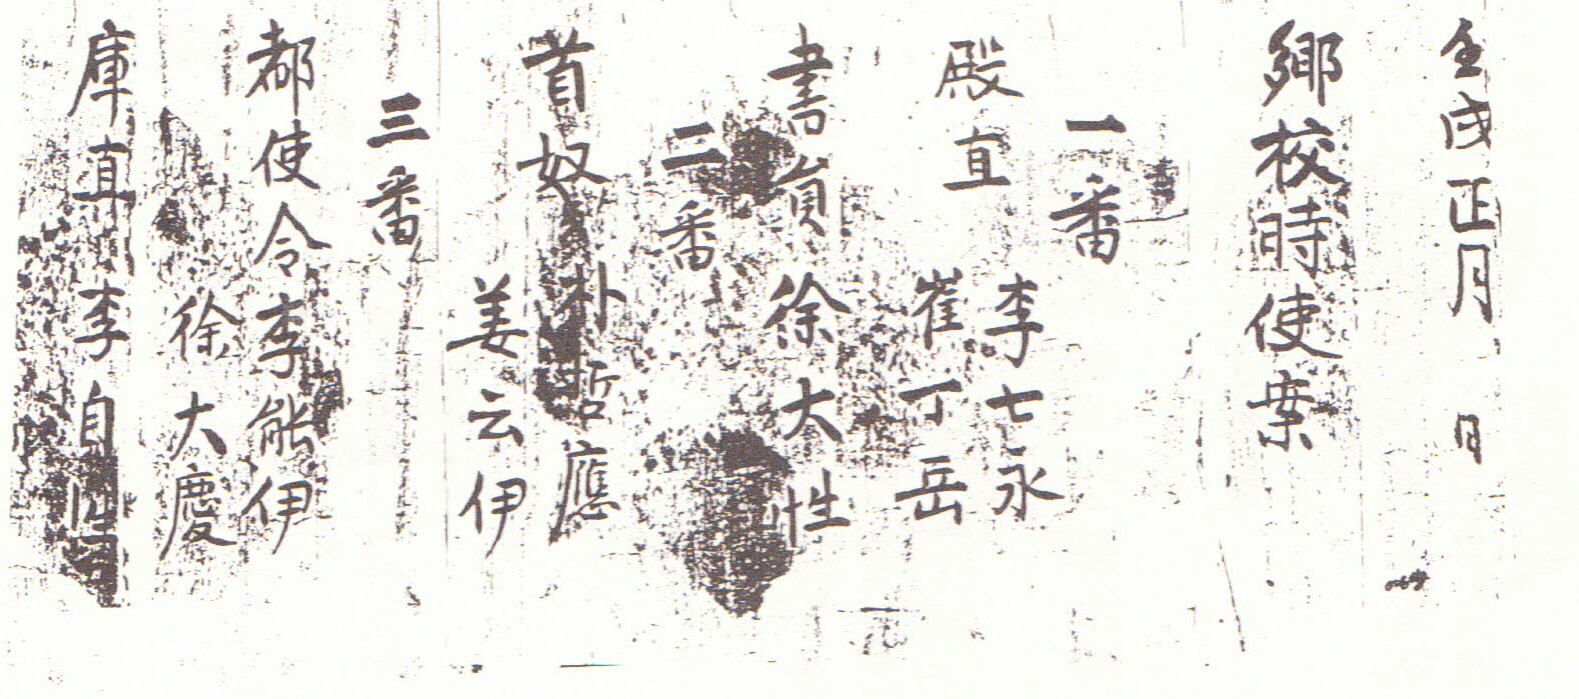 壬戌正月 日
鄕校時使案
一番
殿直 李七永
崔丁岳
書員 徐太性
二番
首奴 朴哲應
姜云伊
三番
都使令 李能伊
徐大慶
庫直 李自性